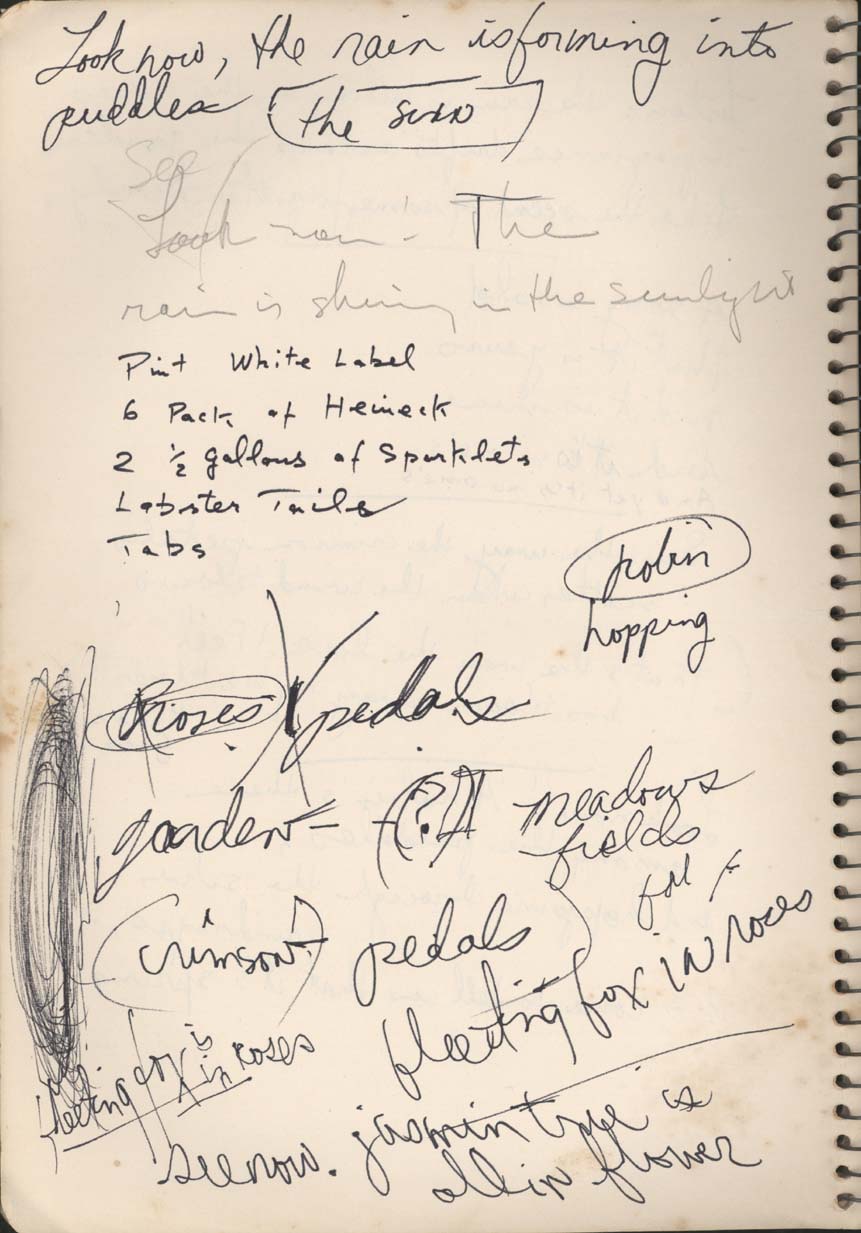 Look now, the rain is forming into
puddles (the sun)
See
Look now - The
rain is shining in the sunlight
Pint White Label
6 Pack of Heineck
2 ½ gallons of Sparklets
Lobster Tails
Tabs
robin
hopping
Roses pedals
garden - (?) meadows
fields
for
(crimson) pedals
fleeting fox in roses
fleeting fox is in roses
see now. jasmin tree is
all in flower